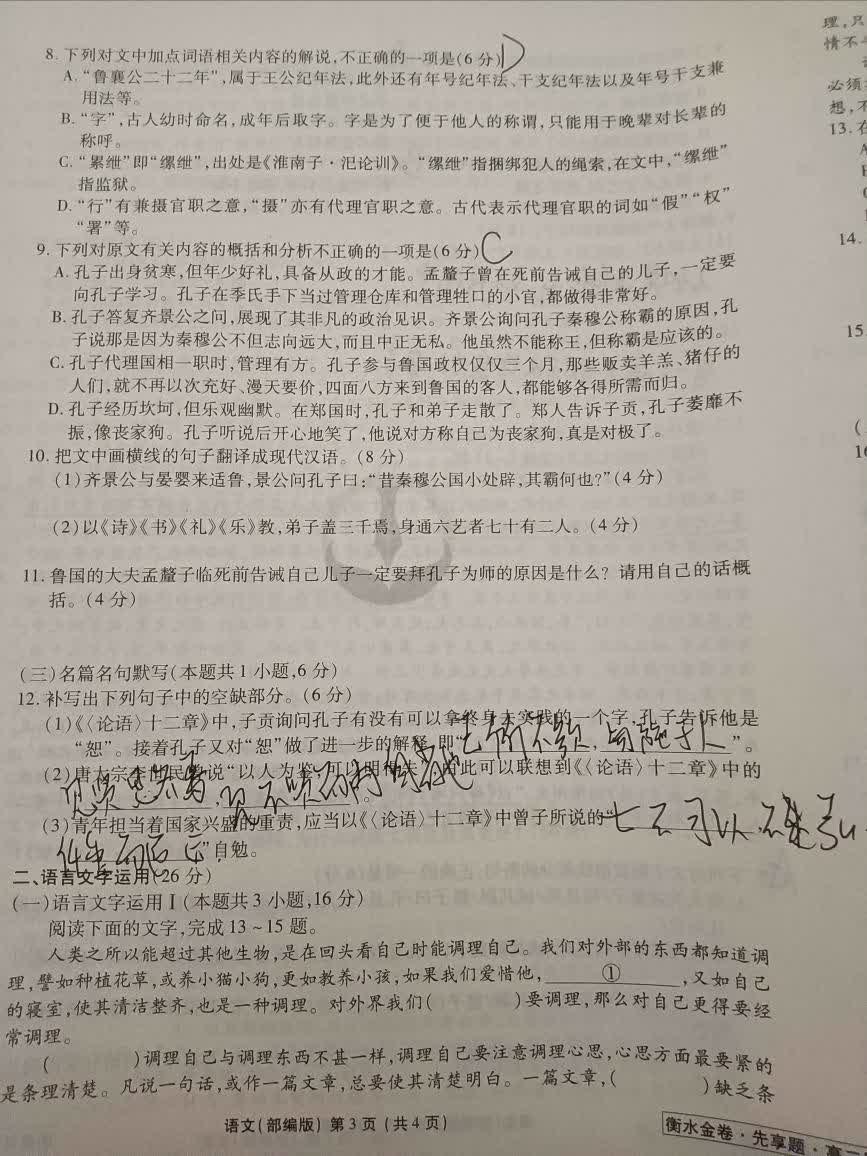 8. 下列对文中加点词语相关内容的解说,不正确的一项是(6分) D
A. “鲁襄公二十二年”,属于王公纪年法,此外还有年号纪年法、干支纪年法以及年号干支兼
用法等。
B. “字”,古人幼时命名,成年后取字。字是为了便于他人的称谓,只能用于晚辈对长辈的
称呼。
C. “累绁”即“缧绁”,出处是《淮南子·氾论训》。“缧绁”指捆绑犯人的绳索,在文中,“缧绁”
指监狱。
D. “行”有兼摄官职之意,“摄”亦有代理官职之意。古代表示代理官职的词如“假”“权”
“署”等。
9. 下列对原文有关内容的概括和分析不正确的一项是(6分) C
A. 孔子出身贫寒,但年少好礼,具备从政的才能。孟釐子曾在死前告诫自己的儿子,一定要
向孔子学习。孔子在季氏手下当过管理仓库和管理牲口的小官,都做得非常好。
B. 孔子答复齐景公之问,展现了其非凡的政治见识。齐景公询问孔子秦穆公称霸的原因,孔
子说那是因为秦穆公不但志向远大,而且中正无私。他虽然不能称王,但称霸是应该的。
C. 孔子代理国相一职时,管理有方。孔子参与鲁国政权仅仅三个月,那些贩卖羊羔、猪仔的
人们,就不再以次充好、漫天要价,四面八方来到鲁国的客人,都能够各得所需而归。
D. 孔子经历坎坷,但乐观幽默。在郑国时,孔子和弟子走散了。郑人告诉子贡,孔子萎靡不
振,像丧家狗。孔子听说后开心地笑了,他说对方称自己为丧家狗,真是对极了。
10. 把文中画横线的句子翻译成现代汉语。(8分)
(1)齐景公与晏婴来适鲁,景公问孔子曰:“昔秦穆公国小处辟,其霸何也?”(4分)
(2)以《诗》《书》《礼》《乐》教,弟子盖三千焉,身通六艺者七十有二人。(4分)
11. 鲁国的大夫孟釐子临死前告诫自己儿子一定要拜孔子为师的原因是什么? 请用自己的话概
括。(4分)
(三)名篇名句默写(本题共1小题,6分)
12. 补写出下列句子中的空缺部分。(6分)
(1)《〈论语〉十二章》中,子贡询问孔子有没有可以拿终身去实践的一个字,孔子告诉他是
“恕”。接着孔子又对“恕”做了进一步的解释,即“己所不欲,勿施于人”。
(2)唐太宗李世民曾说“以人为鉴,可以明得失”,由此可以联想到《〈论语〉十二章》中的
见贤思齐焉,见不贤而内自省也
(3)青年担当着国家兴盛的重责,应当以《〈论语〉十二章》中曾子所说的“士不可以不弘
”自勉。
二、语言文字运用(26分)
(一)语言文字运用Ⅰ(本题共3小题,16分)
阅读下面的文字,完成13~15题。
人类之所以能超过其他生物,是在回头看自己时能调理自己。我们对外部的东西都知道调
理,譬如种植花草,或养小猫小狗,更如教养小孩,如果我们爱惜他,____①____,又如自己
的寝室,使其清洁整齐,也是一种调理。对外界我们(   )要调理,那么对自己更得要经
常调理。
(   )调理自己与调理东西不甚一样,调理自己要注意调理心思,心思方面最要紧的
是条理清楚。凡说一句话,或作一篇文章,总要使其清楚明白。一篇文章,(   )缺乏条
语文(部编版) 第3页(共4页)
衡水金卷·先享题·高二
理,只
情不
必须
想,不
13. 在
A
14.
15
(
16